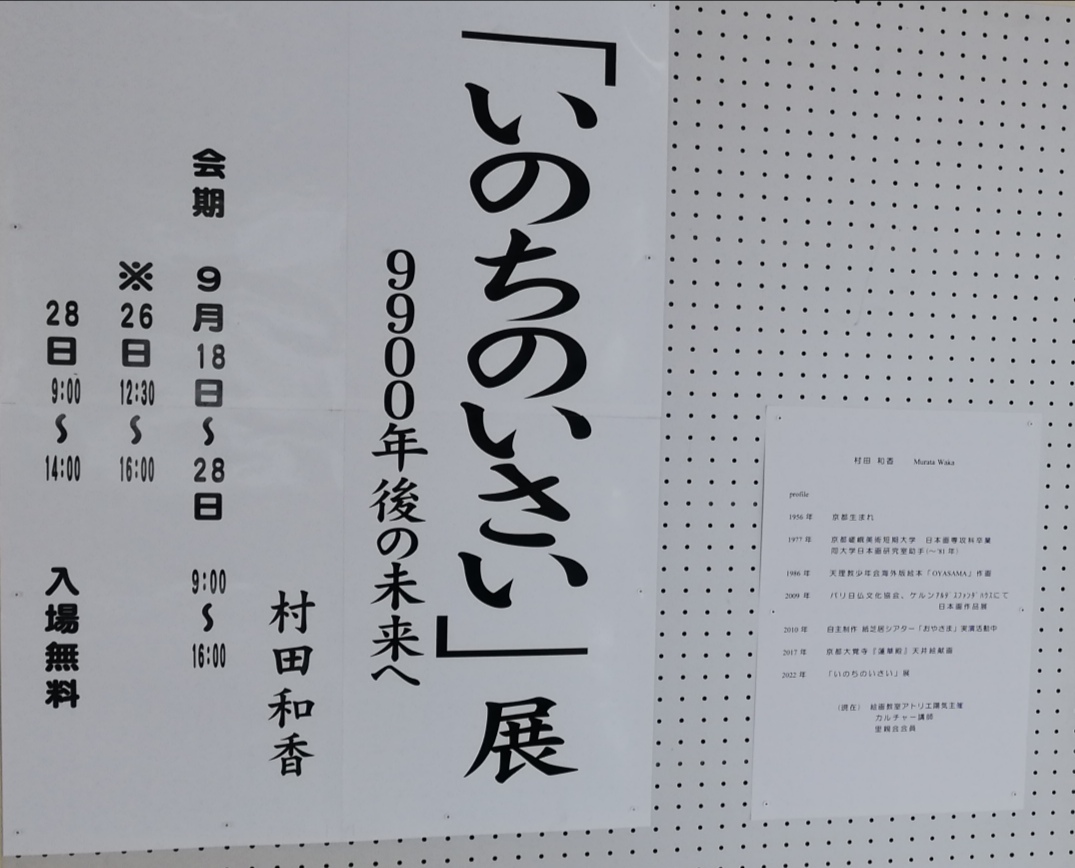 「いのちのいさい」展
9900年後の未来へ
村田和香
会期 9月18日~28日 9:00~16:00
※26日 12:30~16:00
28日 9:00~14:00 入場無料
村田 和香 Murata Waka
profile
1956年 京都生まれ
1977年 京都嵯峨美術短期大学 日本画専攻科卒業
同大学日本画研究室助手(~'81年)
1986年 天理教少年会海外版絵本「OYASAMA」作画
2009年 パリ日仏文化協会、ケルンアルテスファンドハウスにて
日本画作品展
2010年 自主制作 紙芝居シアター「おやさま」実演活動中
2017年 京都大覚寺『蓮華殿』天井絵献画
2022年 「いのちのいさい」展
(現在) 絵画教室アトリエ陽気主催
カルチャー講師
里親会会員